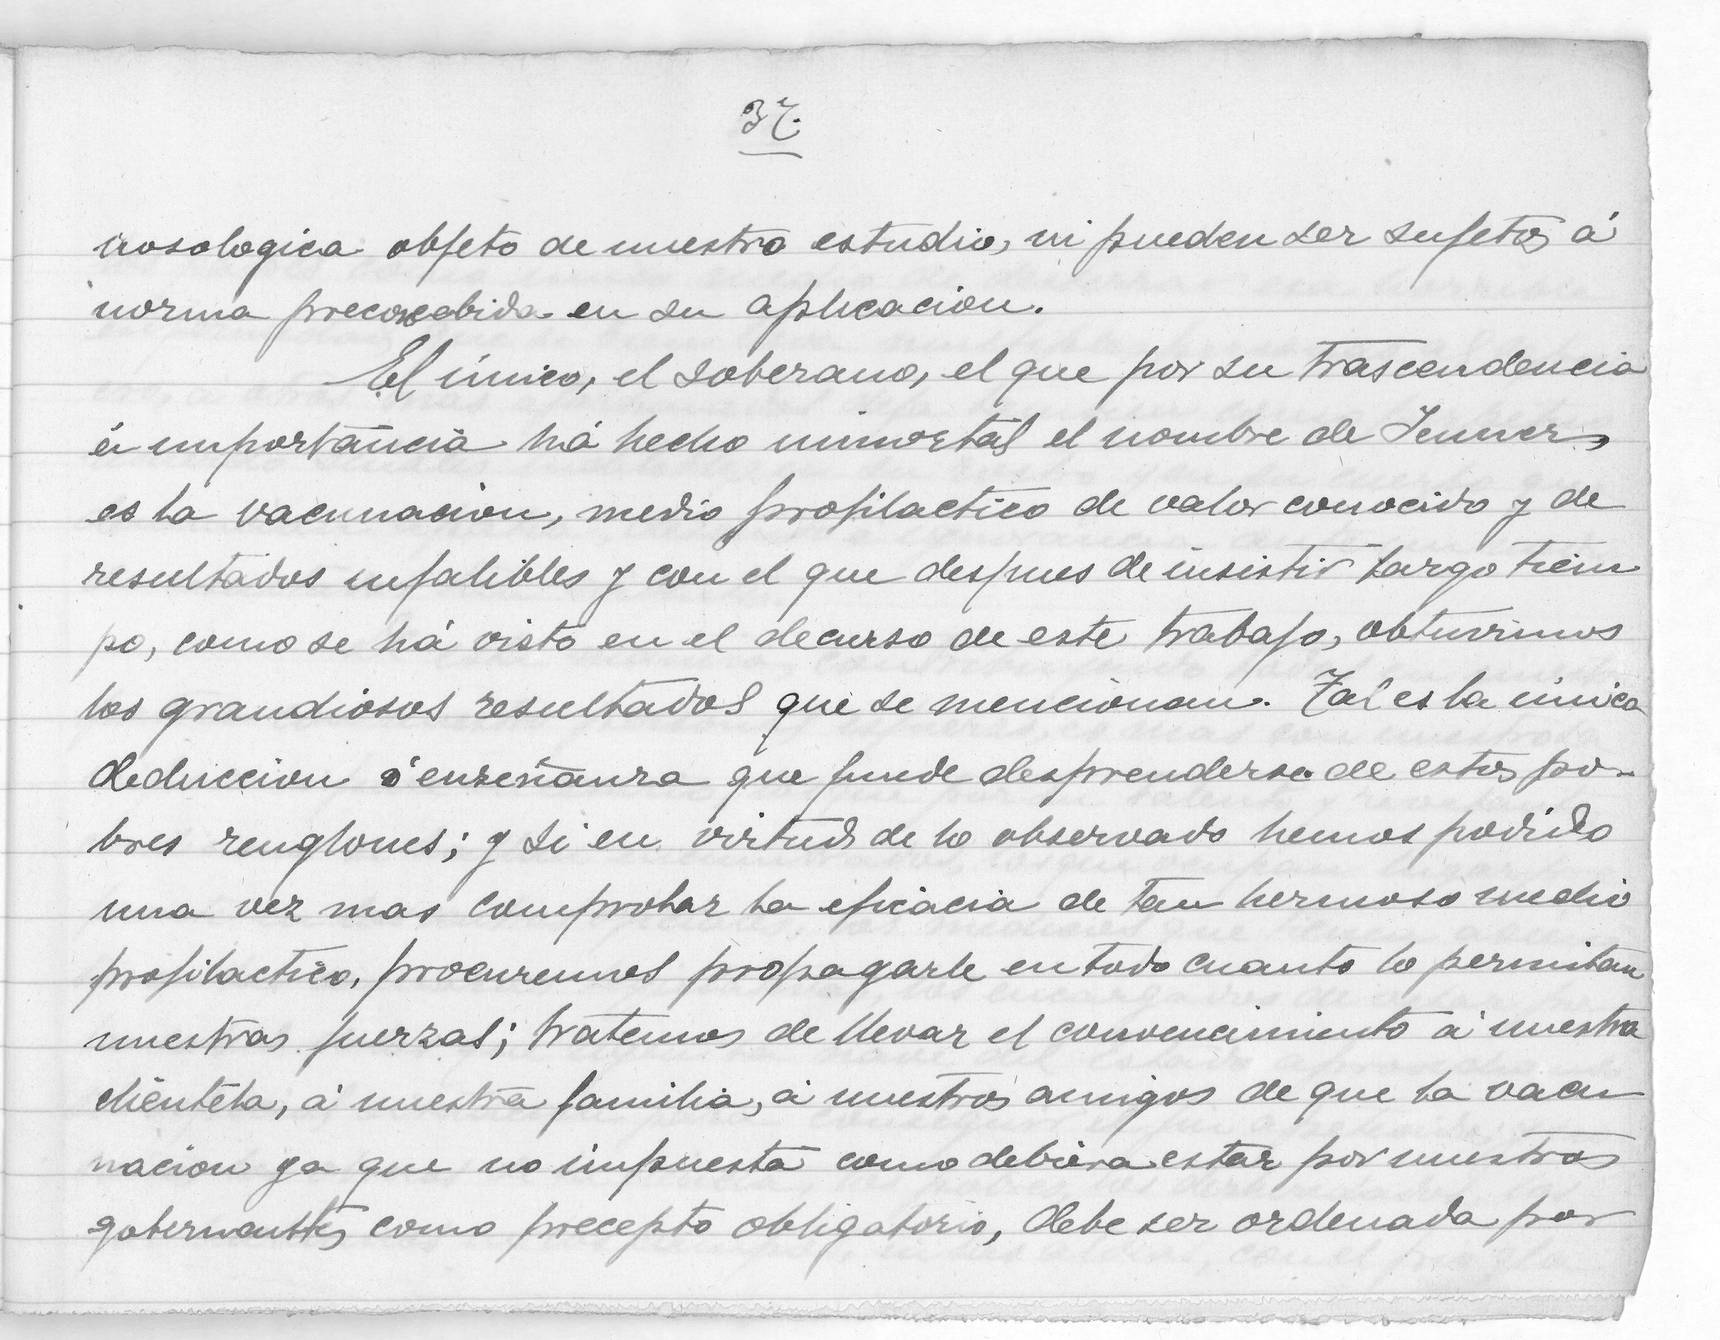 37.
nosologica objeto de nuestro estudio, ni pueden ser sujetos á
norma preconcebida en su aplicacion.
El único, el soberano, el que por su trascendencia
é importáncia há hecho inmortal el nombre de Jenner,
es la vacunacion, medio profilactico de valor conocido y de
resultados infalibles y con el que despues de insistir largo tiem
po, como se há visto en el decurso de este trabajo, obtuvimos
los grandiosos resultados que se mencionan. Tal es la única
deduccion ó enseñanza que puede desprenderse de estos po-
bres renglones; y si en virtud de lo observado hemos podido
una vez mas comprobar la eficácia de tan hermoso medio
profilactico, procuremos propagarle en todo cuanto lo permitan
nuestras fuerzas; tratemos de llevar el convencimiento á nuestra
clientéla, á nuestra familia, á nuestros amigos de que la vacu
nacion ya que no impuesta como debiera estar por nuestros
gobernantes como precepto obligatorio, debe ser ordenada por